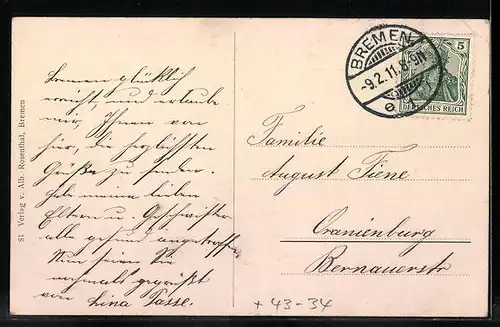 BREMEN
-9.2.11.8-9N
e
5
DEUTSCHES REICH
Bremen glücklich
erreicht, und erlaube
mir, Ihnen von
hier, die herzlichsten
Grüße zu senden.
Habe meine lieben
Eltern u. Geschwister
alle gesund angetroffen
Nun seien Sie
nochmals gegrüßt
von Lina Tasse.
Familie
August Tiene
Oranienburg
Bernauerstr
81 Verlag v. Alb. Rosenthal, Bremen
+ 43-34